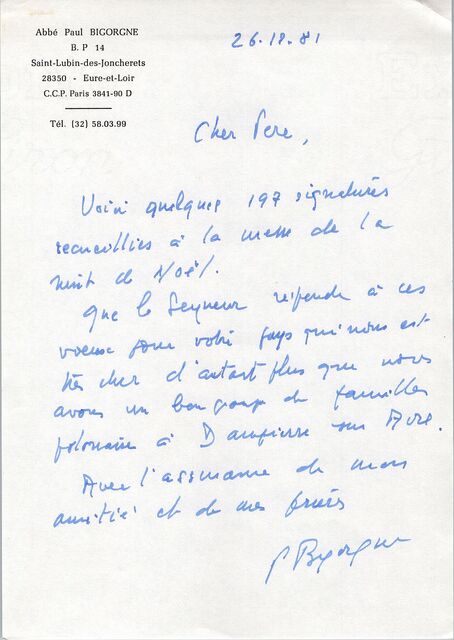 Abbé Paul BIGORGNE
B. P 14
Saint-Lubin-des-Joncherets
28350 - Eure-et-Loir
C.C.P. Paris 3841-90 D
Tél. (32) 58.03.99
26.12.81
Cher Père,
Voici quelques 197 signatures
recueillies à la messe de la
nuit de Noël.
Que le Seigneur réponde à ces
voeux pour votre pays qui nous est
très cher d'autant plus que nous
avons un bon groupe de familles
polonaises à Dampierre sur Avre.
Avec l'assurance de mon
amitié et de mes prières
P Bigorgne